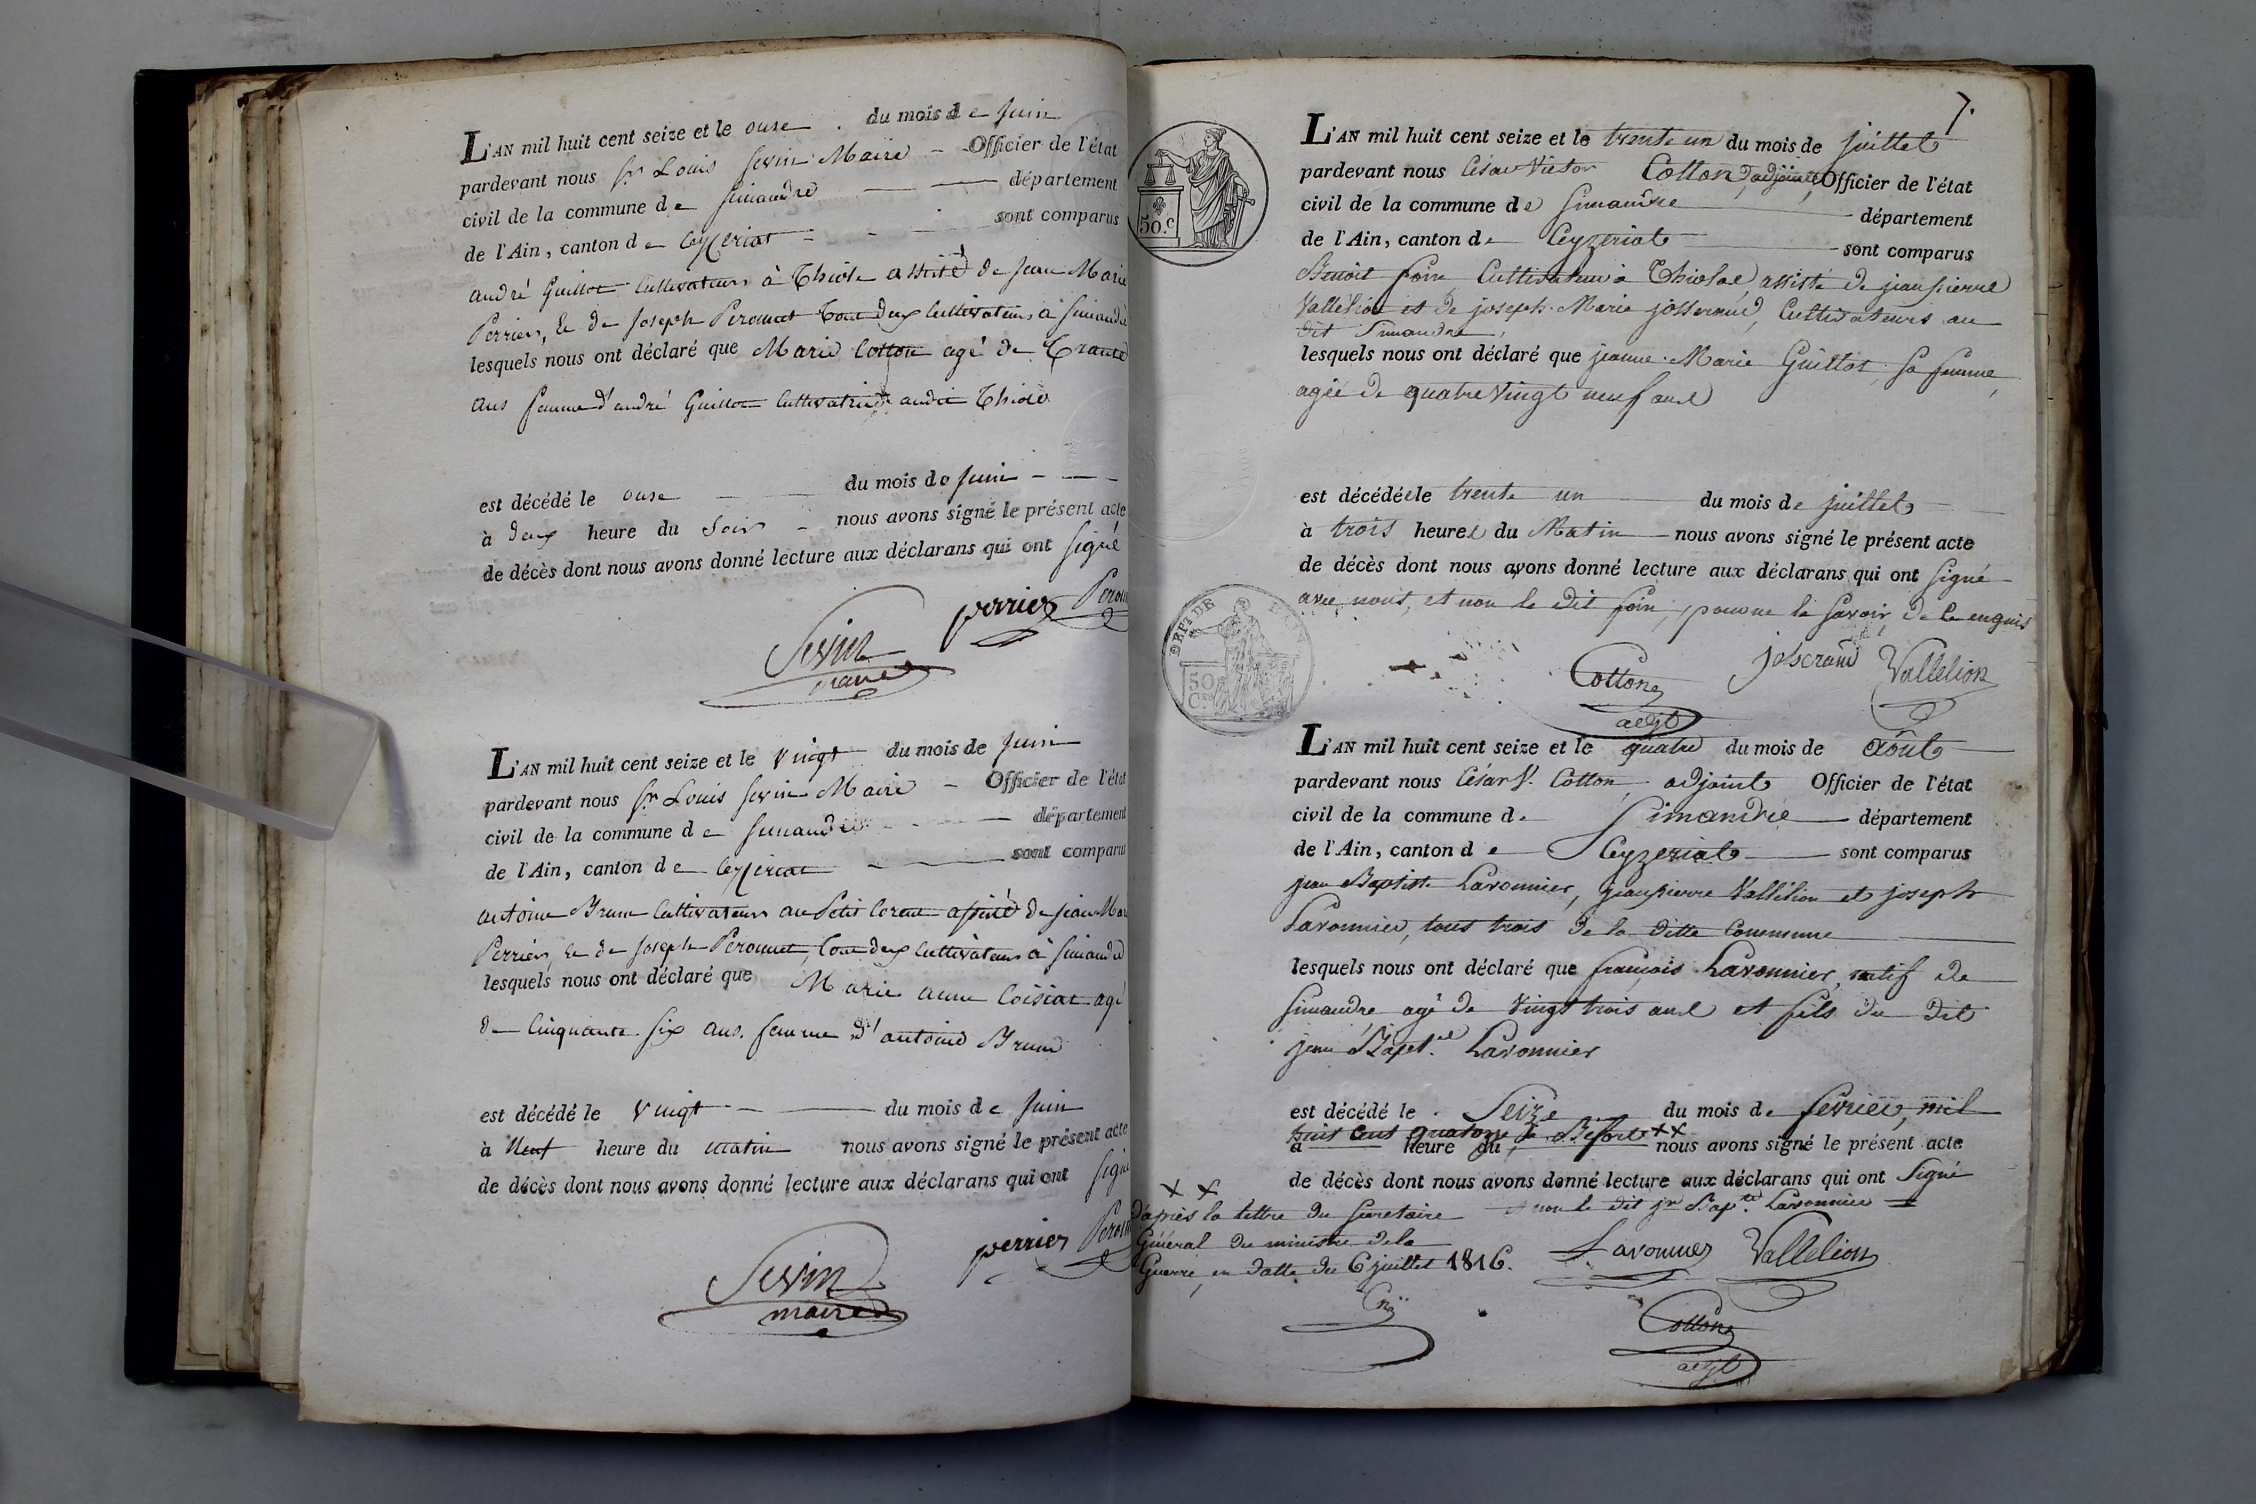 L'AN mil huit cent seize et le onse du mois de Juin
pardevant nous Sr Louis Sevin Maire Officier de l'état
civil de la commune de Simandre département
de l'Ain, canton de Ceyzeriat sont comparus
andré Guillot Cultivateur à Thiole assisté de Jean Marie
Perrier, Et de Joseph Peronnet tout deux Cultivateurs à Simandre
lesquels nous ont déclaré que Marie Cotton agé de Trante
ans femme d'andré Guillot Cultivatrice audit Thiole
est décédé le onse du mois de Juin
à deux heure du Soir nous avons signé le présent acte
de décès dont nous avons donné lecture aux déclarans qui ont signé
perrier Peron
Sevin
maire
L'AN mil huit cent seize et le Vingt du mois de Juin
pardevant nous Sr Louis Sevin Maire Officier de l'état
civil de la commune de Simandre département
de l'Ain, canton de Ceyzeriat sont comparus
antoine Brun Cultivateur au Petit Corent assisté de Jean Mar
Perrier, Et de Joseph Peronnet, tout deux Cultivateurs à Simandre
lesquels nous ont déclaré que Marie anne Coisiat agé
de Cinquante six ans. femme d'antoine Brun
est décédé le Vingt du mois de Juin
à Neuf heure du matin nous avons signé le présent acte
de décès dont nous avons donné lecture aux déclarans qui ont Signé
perrier Peron
Sevin
maire
7.
L'AN mil huit cent seize et le trente un du mois de juillet
pardevant nous César Victor Cotton, adjoint, Officier de l'état
civil de la commune de Simandre département
de l'Ain, canton de Ceyzeriat sont comparus
Benoit foin Cultivateur à Thiole assisté de jean pierre
Vallélion et de joseph Marie josserand, Cultivateurs au
dit Simandre,
lesquels nous ont déclaré que jeanne Marie Guillot, sa femme,
agée de quatre Vingt neuf ans
est décédée le trente un du mois de juillet
à trois heures du Matin nous avons signé le présent acte
de décès dont nous avons donné lecture aux déclarans qui ont Signé
avec nous, et non le dit foin, pour ne le savoir, de ce enquis
josserand Vallelion
Cotton
adjt
50.c
DEPT DE L'AIN
50
C.
L'AN mil huit cent seize et le quatre du mois de Août
pardevant nous César V. Cotton, adjoint Officier de l'état
civil de la commune de Simandre département
de l'Ain, canton de Ceyzeriat sont comparus
jean Baptiste Lavonnier, jean pierre Vallélion et joseph
Lavonnier, tous trois de la ditte Commune
lesquels nous ont déclaré que françois Lavonnier, natif de
Simandre agé de Vingt trois ans et fils du dit
jean Bapt. Lavonnier
est décédé le Seize du mois de février, mil
huit cent quatorze à Béfort XX
à heure du nous avons signé le présent acte
de décès dont nous avons donné lecture aux déclarans qui ont Signé
et non le dit jn Bapte. Lavonnier
XX
D'après la lettre du Secretaire
Général du ministre de la
Guerre, en datte du 6 juillet 1816.
Lavonnier Vallelion
Cotton
adjt